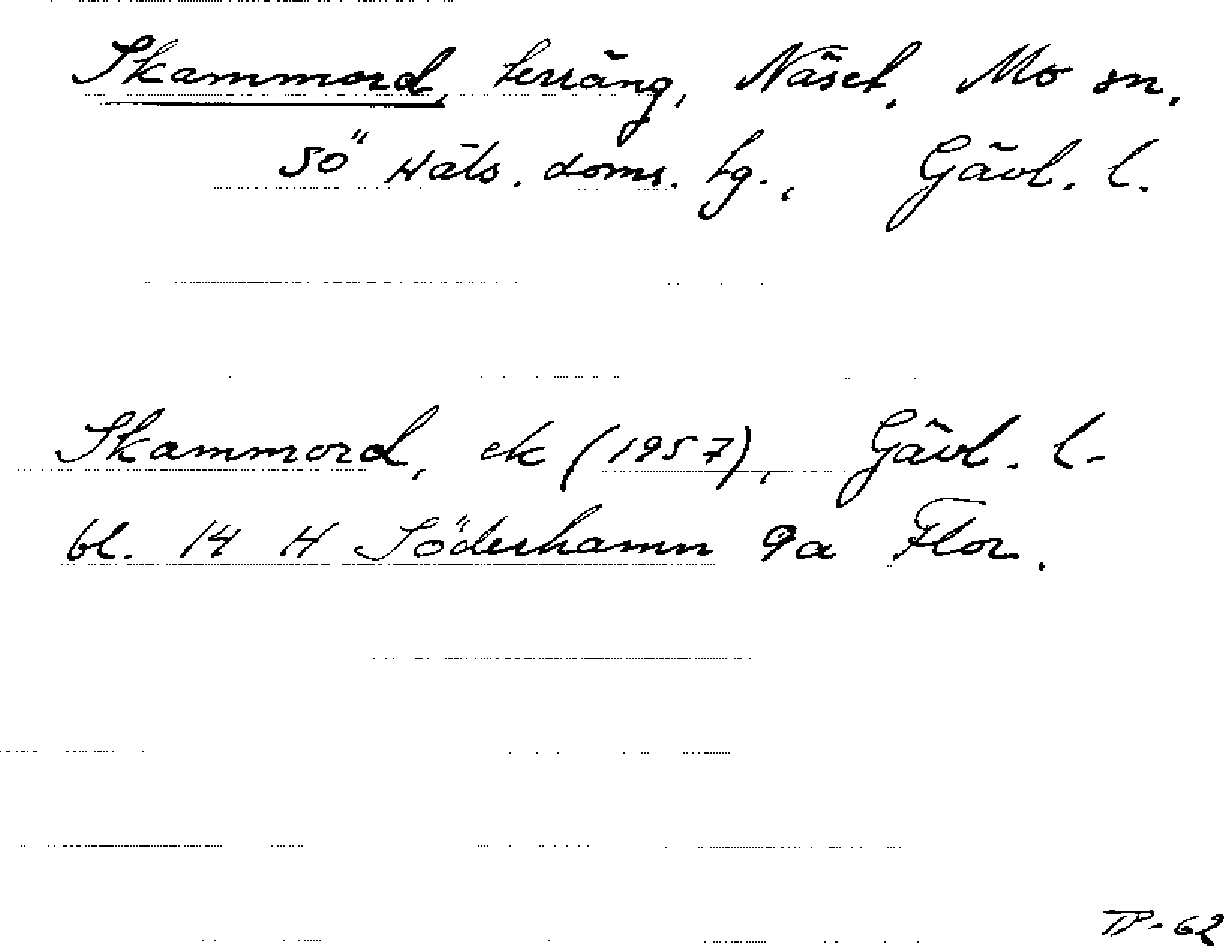 Skammord, terräng, Näset, Mo sn,
SÖ Häls. doms. hg., Gävl. l.
Skammord, ek (1957), Gävl. l.
bl. 14 H Söderhamn 9a Flor.
TP-62